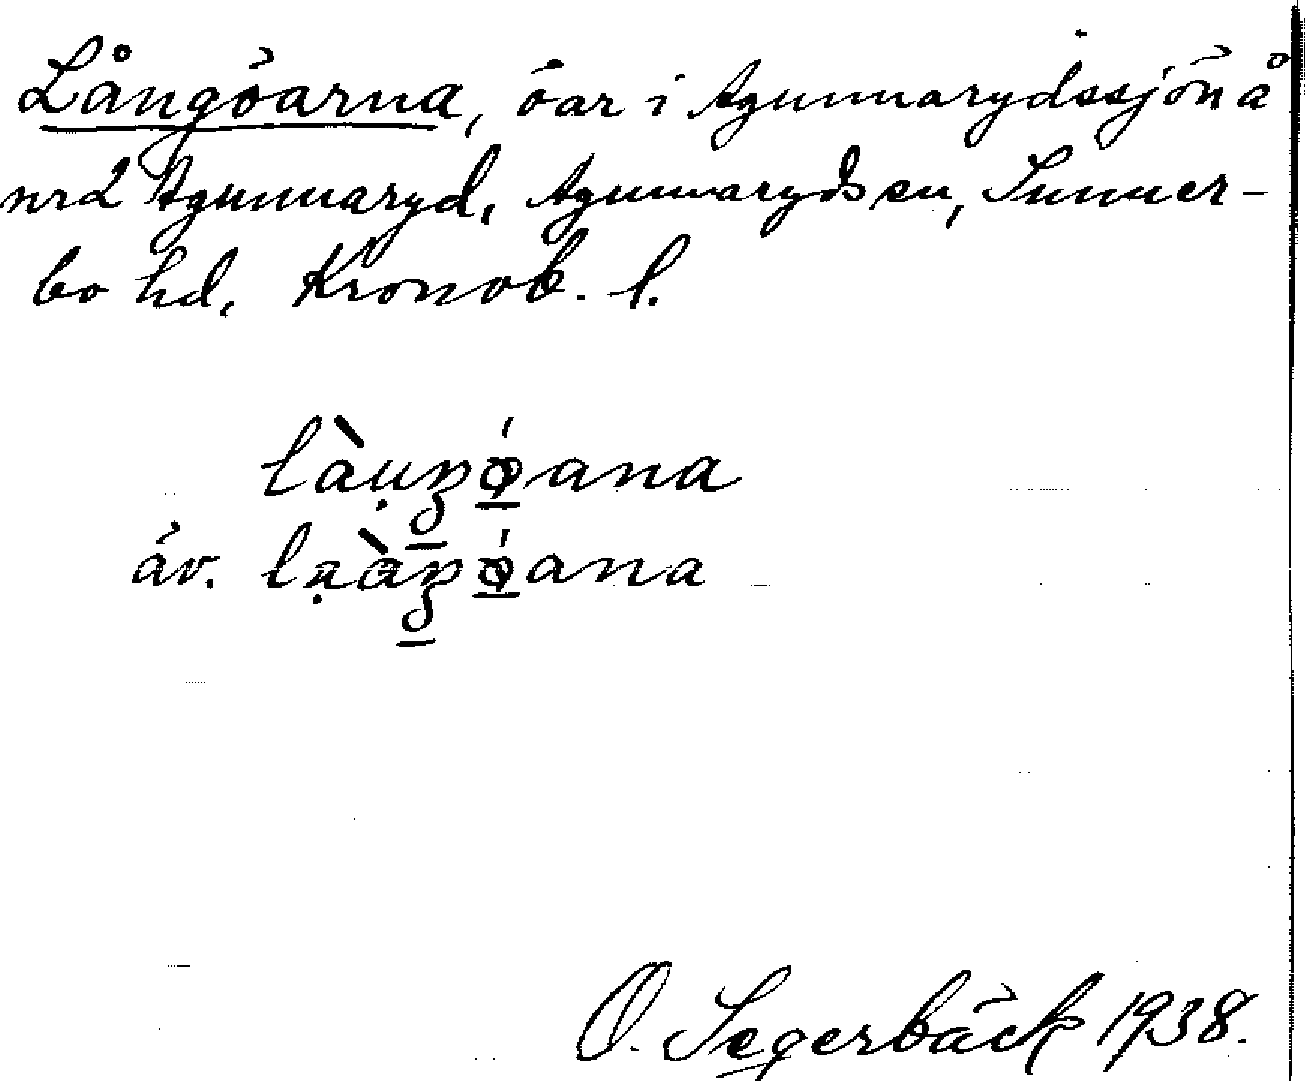 Långöarna, öar i Agunnarydssjön å
nrd Agunnaryd, Agunnaryds sn, Sunner-
bo hd, Kronob. l.
äv.
O. Segerbäck 1938.